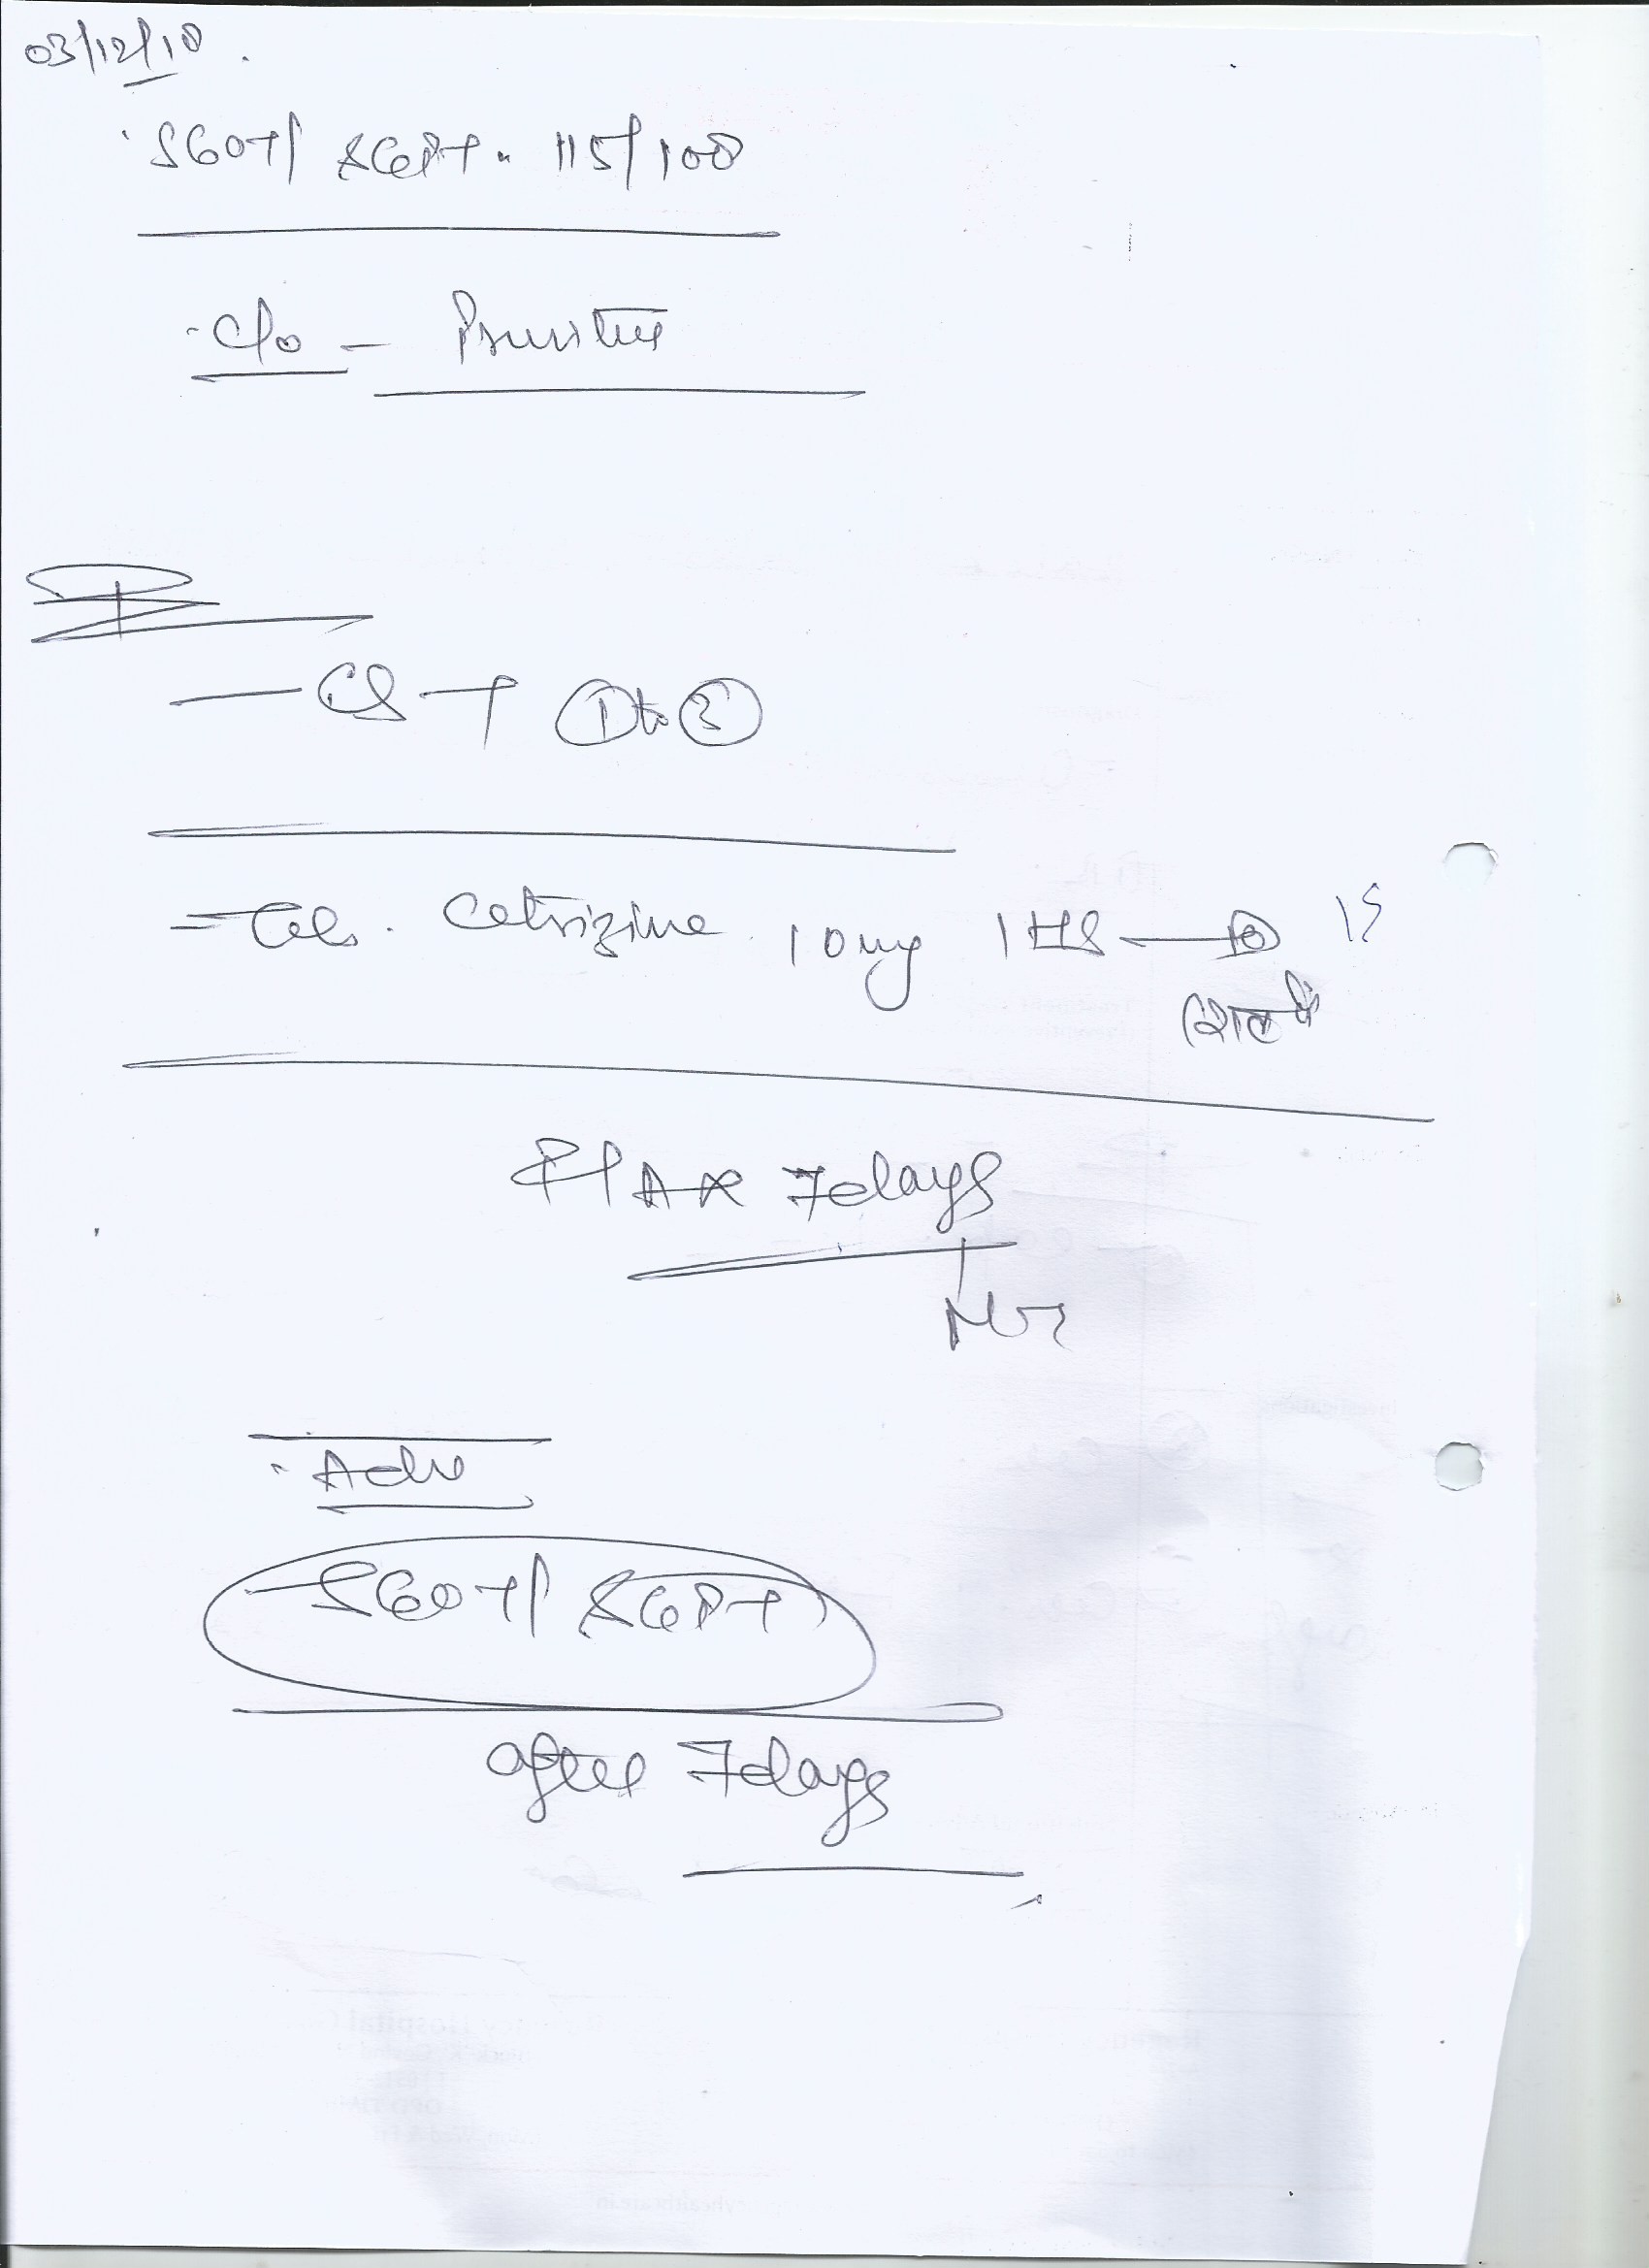 03/12/18.
SGOT/ SGPT. 115/100
C/o - Pruritus
Rx
- CST ① to ③
- Tab. Cetrizine 10mg 1 HS → 15
रात को
7 days
Adv
- SGOT/ SGPT
after 7 days